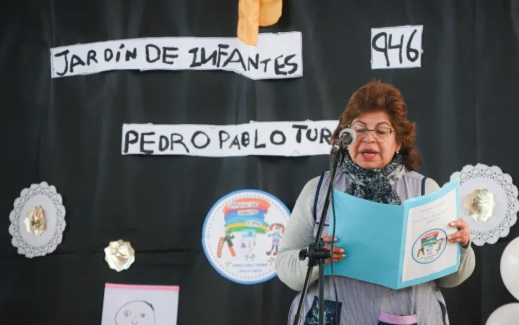 JARDÍN DE INFANTES
946
PEDRO PABLO TUR